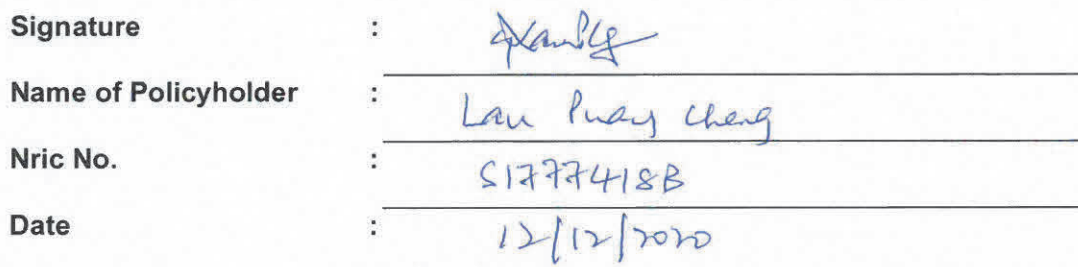 Signature :
Name of Policyholder : Lau Puay Cheng
Nric No. : S1777418B
Date : 12/12/2020